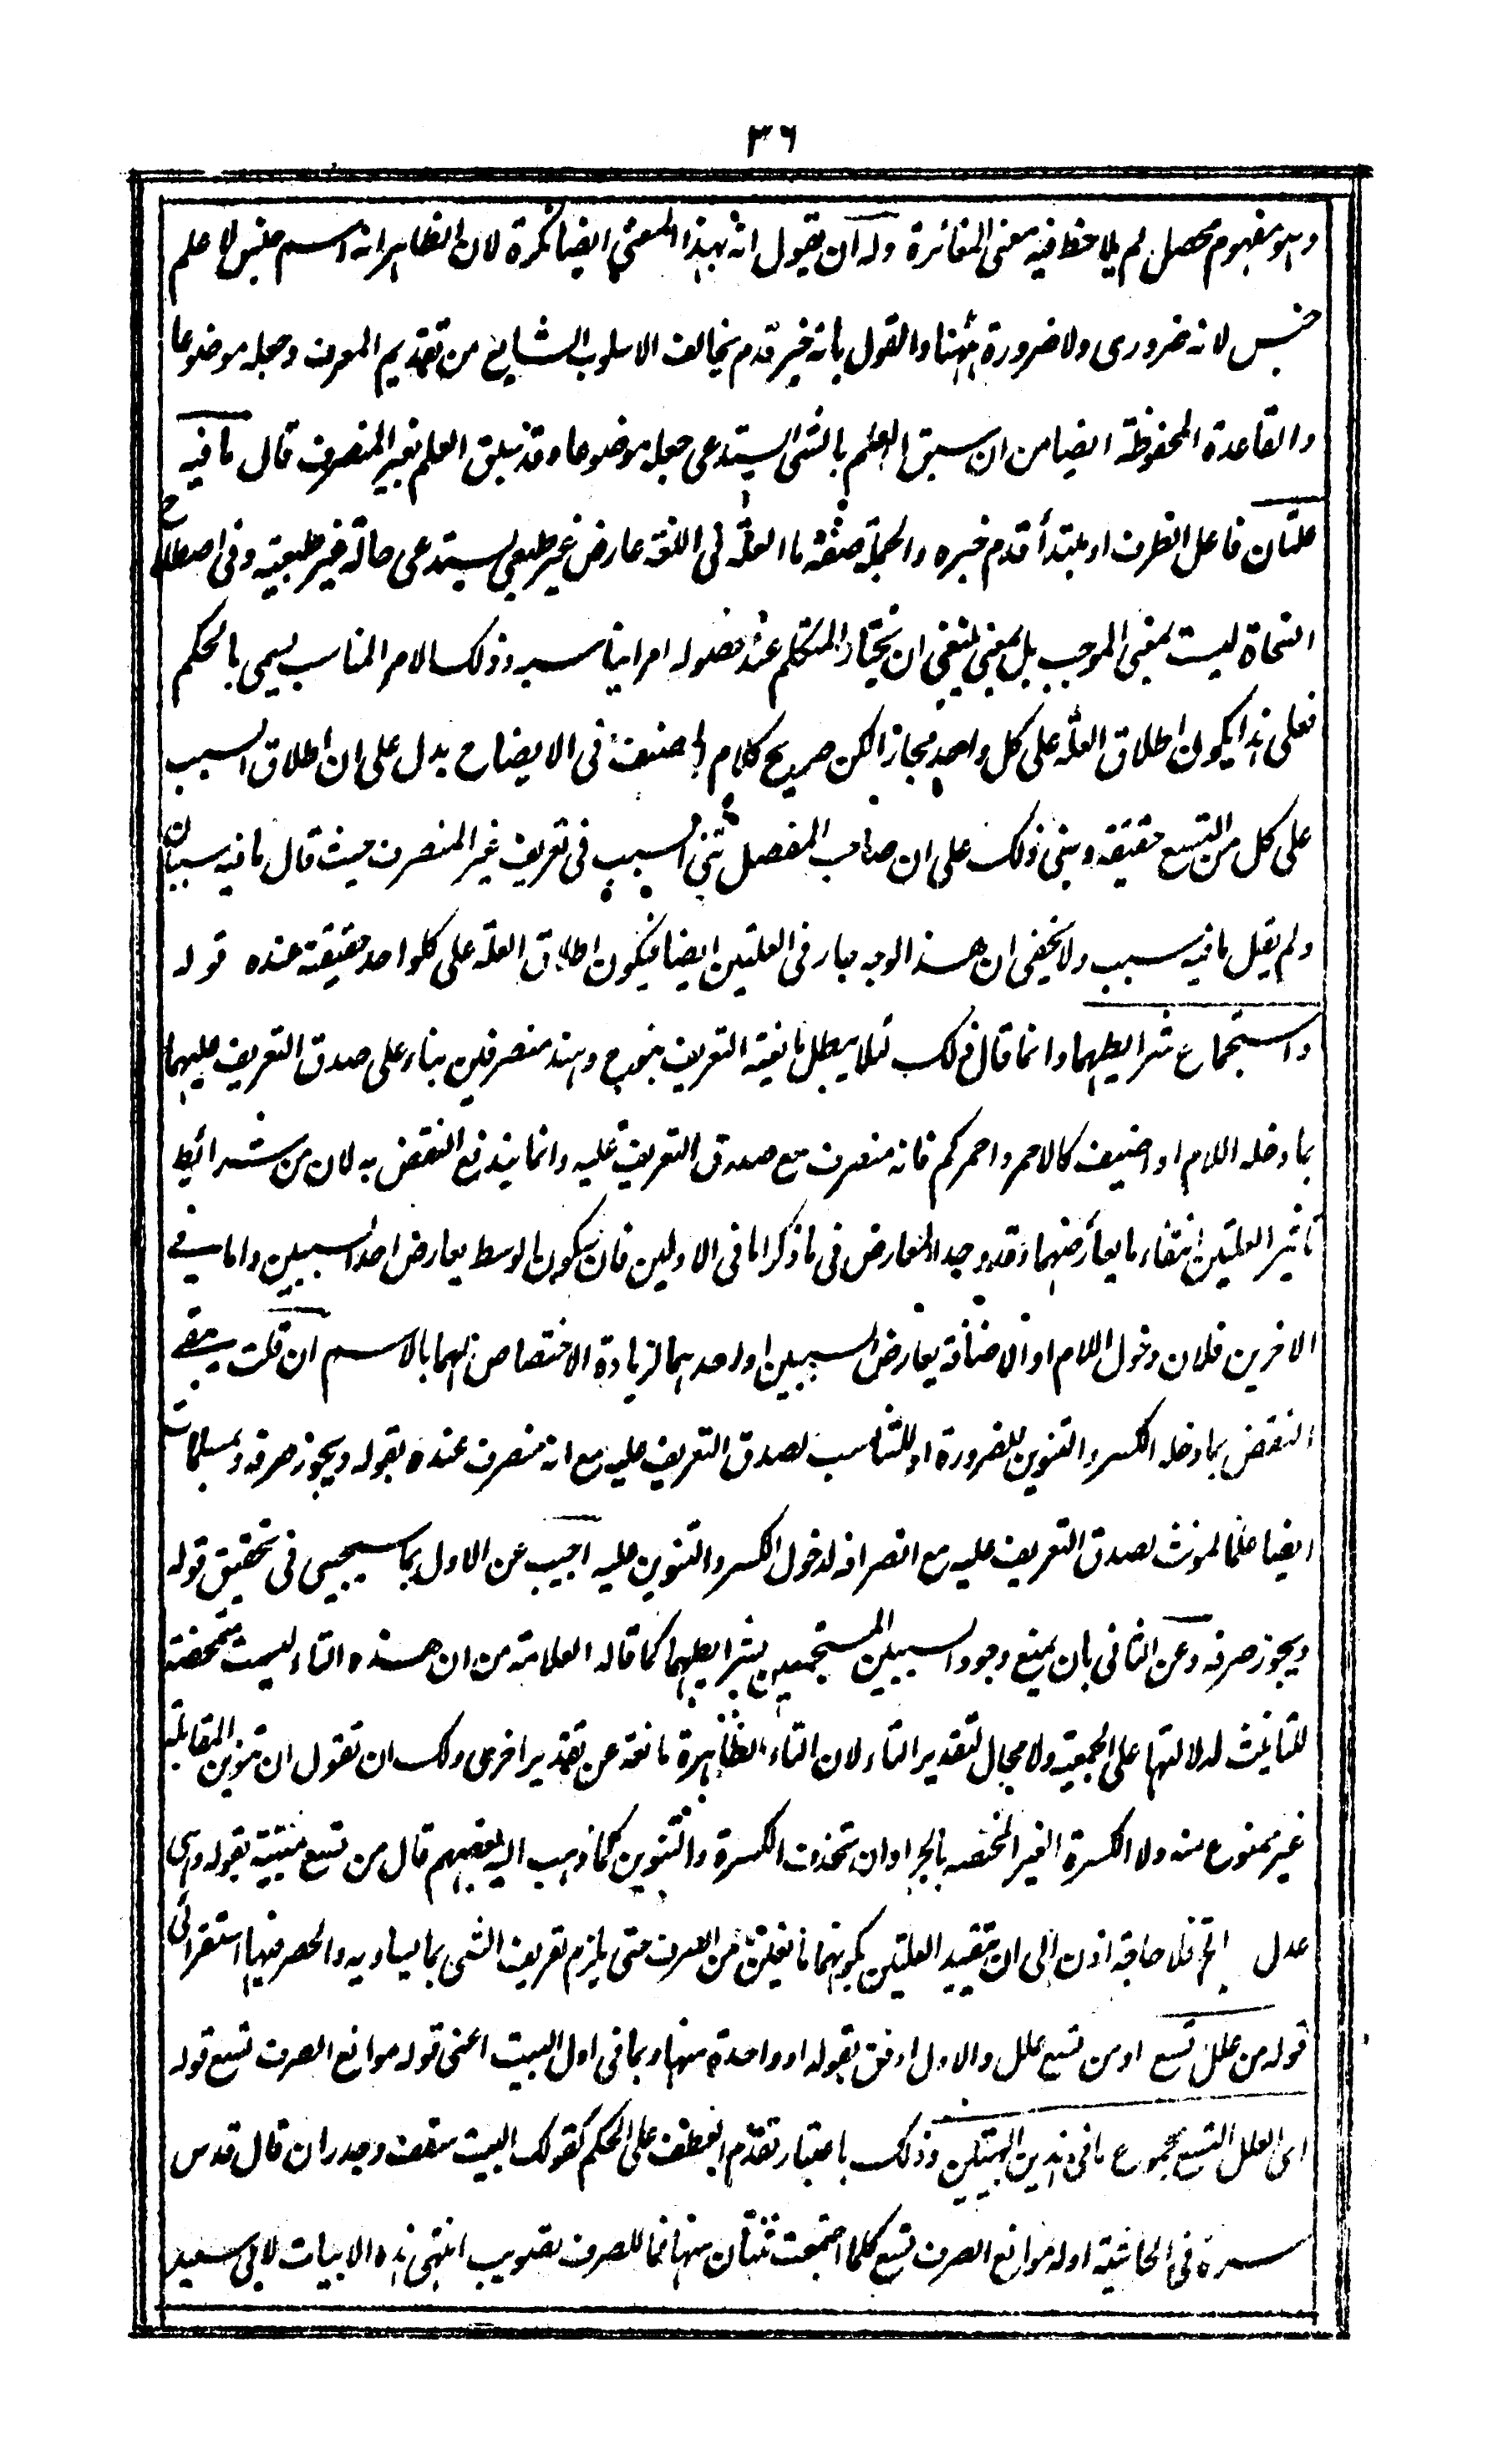 ٣٦
وهو مفهوم محصل لم يلاحظ فيه معنى المغائرة وله ان يقول انه بهذا المعنى ايضا نكرة لان الظاهر انه اسم جنس لا علم
جنس لانه ضرورى ولا ضرورة ههنا والقول بانه خبر قدم يخالف الاسلوب الشايع من تقديم المعرف وجعله موضوعا
والقاعدة المحفوظة ايضا من ان سبق العلم بالشى يستدعى جعله موضوعا وقد سبق العلم بغير المنصرف قال ما فيه
علتان فاعل الظرف او مبتدأ قدم خبره والجملة صفة ما العلة فى اللغة عارض غير طبعى يستدعى حالة غير طبعية وفى اصطلاح
النحاة ليست بمعنى الموجب بل بمعنى ينبغى ان يختار المتكلم عند حصوله امرا يناسبه وذلك الامر المناسب يسمى بالحكم
فعلى هذا يكون اطلاق العلة على كل واحد مجازا لكن صريح كلام المصنف فى الايضاح يدل على ان اطلاق السبب
على كل من التسع حقيقة وبنى ذلك على ان صاحب المفصل ثنى السبب فى تعريف غير المنصرف حيث قال ما فيه سببان
ولم يقل ما فيه سبب ولا يخفى ان هذا الوجه جار فى العلتين ايضا فيكون اطلاق العلة على كلواحد حقيقة عنده قوله
واستجماع شرايطهما وانما قال ذلك لئلا يبطل مانعية التعريف بنوح وهند منصرفين بناء على صدق التعريف عليهما
بما دخله اللام او اضيف كالاحمر واحمركم فانه منصرف مع صدق التعريف عليه وانما يندفع النقض به لان من شرائط
تاثير العلتين انتفاء ما يعارضهما وقد وجد المعارض فى ما ذكر اما فى الاولين فان سكون الوسط يعارض احد السببين واما فى
الاخرين فلان دخول اللام او الاضافة يعارض السببين او احدهما لزيادة الاختصاص لهما بالاسم ان قلت يبقى
النقض بما دخله الكسر والتنوين للضرورة او للتناسب لصدق التعريف عليه مع انه منصرف عنده بقوله ويجوز صرفه وبمسلمات
ايضا علما لمونث لصدق التعريف عليه مع انصرافه لدخول الكسر والتنوين عليه اجيب عن الاول بما سيجيى فى تحقيق قوله
ويجوز صرفه وعن الثانى بان يمنع وجود السببين المستجمعين بشرايطهما كما قاله العلامة من ان هذه التاء ليست متمحضة
للتانيث لدلالتها على الجمعية ولا مجال لتقدير التاء لان التاء الظاهرة مانعة عن تقدير اخرى ولك ان تقول ان تنوين المقابلة
غير ممنوع منه ولا الكسرة الغير المختصه بالجر او ان تحذف الكسرة والتنوين كما ذهب اليه بعضهم قال من تسع مبينة بقوله وهى
عدل الخ فلا حاجة اذن الى ان تقييد العلتين بكونهما مانعتين من الصرف حتى يلزم تعريف الشى بما يساويه والحصر فيها استقرائى
قوله من علل تسع او من تسع علل والاول اوفق بقوله او واحدة منها وبما فى اول البيت اعنى قوله موانع الصرف تسع قوله
اى العلل التسع مجموع ما فى هذين البيتين وذلك باعتبار تقدم العطف على الحكم كقولك البيت سقف وجدران قال قدس
سره فى الحاشية اوله موانع الصرف تسع كلما اجتمعت ثنتان منها فما للصرف تصويب انتهى هذه الابيات لابى سعيد